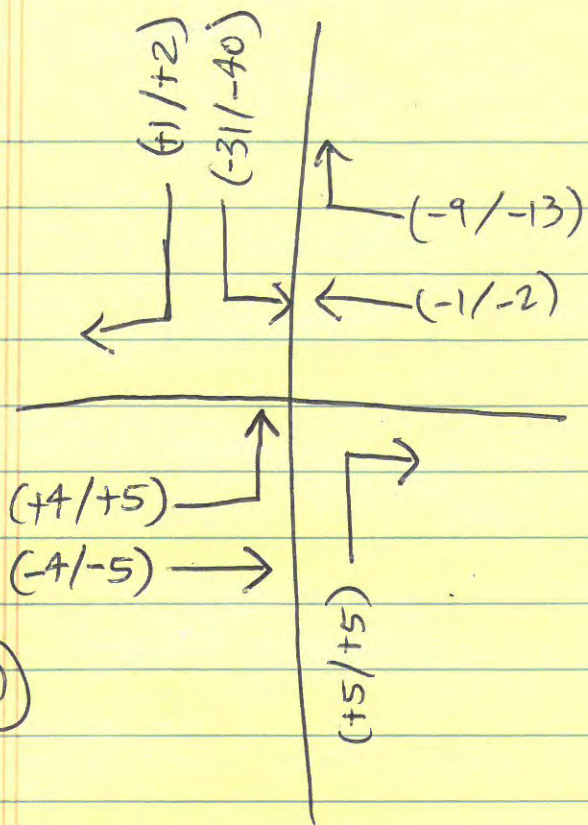 (+1/+2)
(-31/-40)
(-9/-13)
(-1/-2)
(+4/+5)
(-4/-5)
(+5/+5)